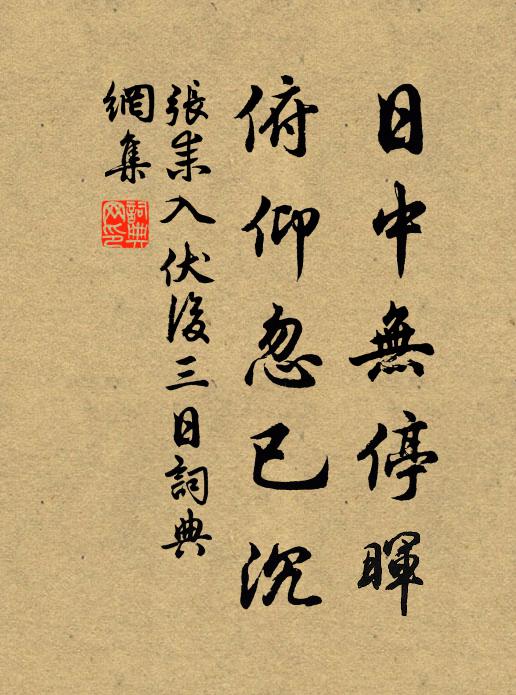 日中無停暉
俯仰忽已沉
張耒入伏後三日詞典
網集
詞典
网印